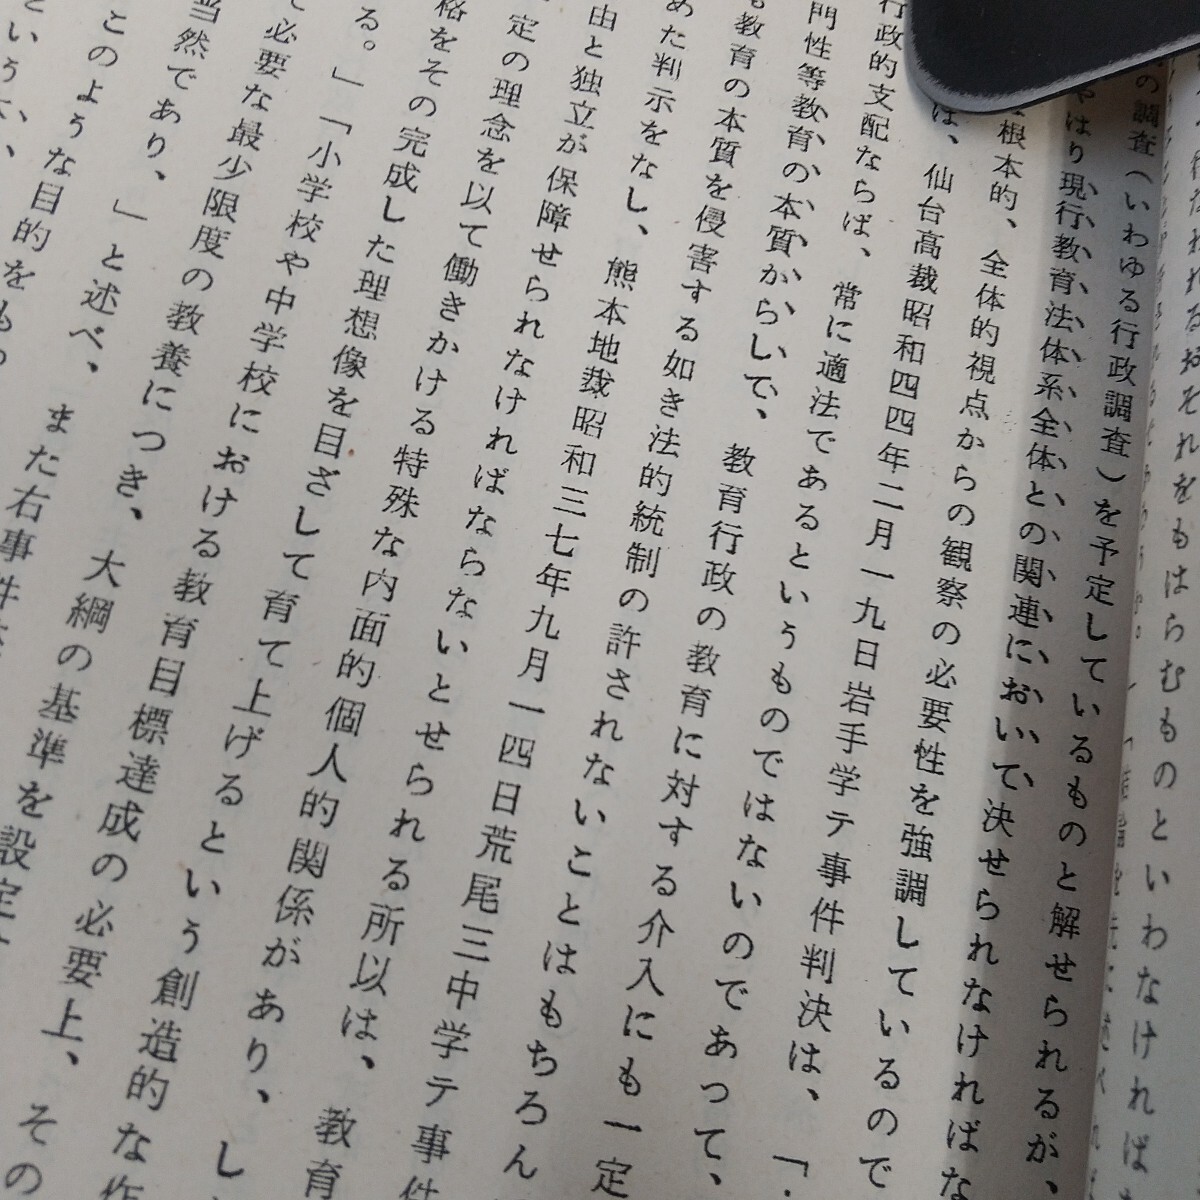 それをもはらむものといわなければ
の調査（いわゆる行政調査）を予定しているものと解せられるが、
やはり現行教育法体系全体との関連において決せられなければな
根本的、全体的視点からの観察の必要性を強調しているので
は、仙台高裁昭和四四年二月一九日岩手学テ事件判決は、「
行政的支配ならば、常に適法であるというものではないのであって、
門性等教育の本質からして、教育行政の教育に対する介入にも一定
教育の本質を侵害する如き法的統制の許されないことはもちろん
めた判示をなし、熊本地裁昭和三七年九月一四日荒尾三中学テ事件
由と独立が保障せられなければならないとせられる所以は、教育
定の理念を以て働きかける特殊な内面的個人的関係があり、し
格をその完成した理想像を目ざして育て上げるという創造的な作
る。」「小学校や中学校における教育目標達成の必要上、その
必要な最少限度の教養につき、大綱の基準を設定
当然であり、」と述べ、また右事件
このような目的をもっ
という